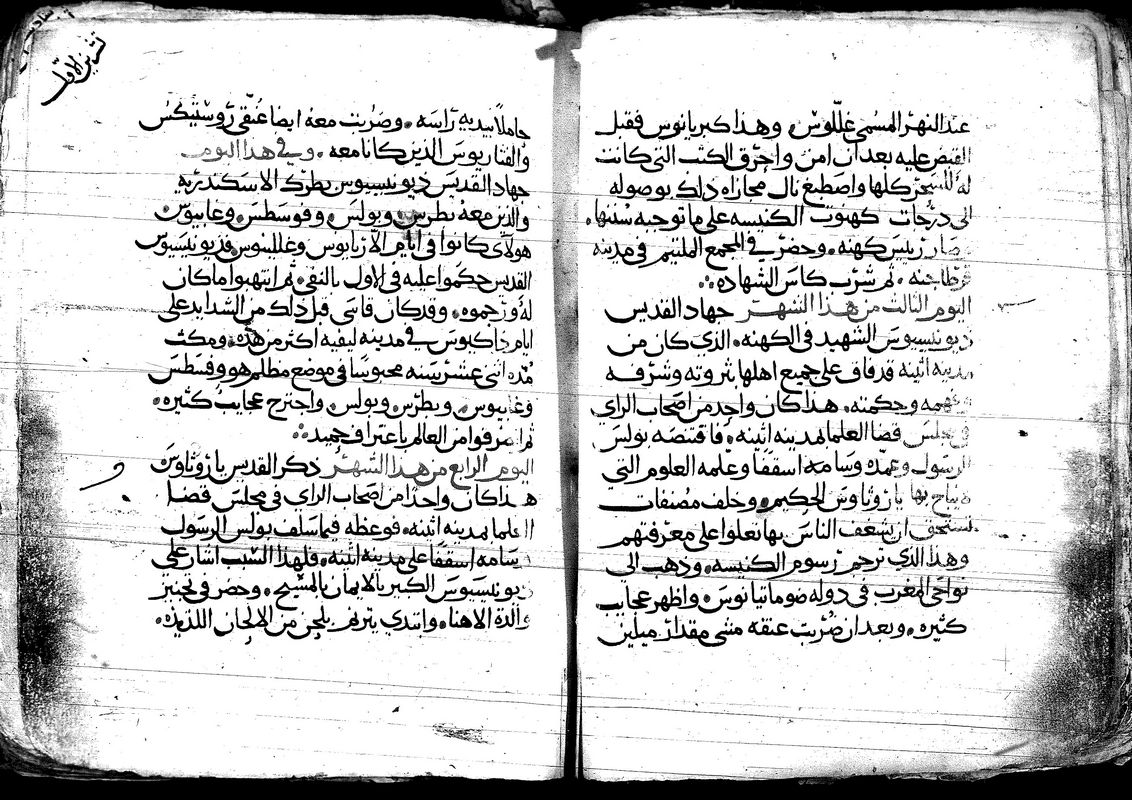 عند النهر المسمى غللوس. وهذا كبريانوس فقبل
القبض عليه بعد ان امن واحرق الكتب التي كانت
له للسحر كلها واصطبغ نال مجازاه ذلك بوصوله
الى درجات كهنوت الكنيسه على ما توجبه سننها.
وصار رييس كهنه. وحضر في المجمع الملتيم في مدينه
قرطاجنه. ثم شرب كاس الشهاده:.
اليوم الثالث من هذا الشهر جهاد القديس
ديونيسيوس الشهيد في الكهنه. الذي كان من
مدينه اثينه قد فاق على جميع اهلها بثروته وشرفه
وفهمه وحكمته. هذا كان واحد من اصحاب الراي
في مجلس قضا العلما لمدينه اثينه. فاقتنصه بولس
الرسول وعمده وسامه اسقفا وعلمه العلوم التي
بها ياروثاوس الحكيم. وخلف مصنفات
تستحق ان يشغف الناس بها تعلوا على معرفتهم
وهذا الذي ترجم رسوم الكنيسه. وذهب الى
نواحي المغرب في دوله ضوماتيانوس. واظهر عجايب
كثيره. وبعد ان ضربت عنقه مشى مقدار ميلين
تشرين الاول
حاملا بيديه راسه. وضربت معه ايضا عنقي روستيكس
والفتاريوس الذين كانا معه. وفي هذا اليوم
جهاد القديس ديونيسيوس بطرك الاسكندريه
والذين معه بطرس وبولس. وفوسطس. وغابيوس.
هولاي كانوا في ايام الاريانوس وغللينوس فديونيسيوس
القديس حكموا عليه في الاول بالنفي. ثم انتهبوا ما كان
له ورجموه. وقد كان قاسى قبل ذلك من الشدايد على
ايام ذاكيوس في مدينه ليفيه اكثر من هذه. ومكث
مده اثنى عشر سنه محبوسا في موضع مظلم هو وفسطس
وغابيوس. وبطرس وبولس. واجترح عجايب كثيره.
ثم انصرفوا من العالم باعتراف حميد:.
اليوم الرابع من هذا الشهر ذكر القديس ياروثاوس
هذا كان واحدا من اصحاب الراي في مجلس قضا
العلما لمدينه اثينه. فوعظه فيما سلف بولس الرسول
وسامه اسقفا على مدينه اثينه. فلهذا السبب اشار على
ديونيسيوس الكبير بالايمان بالمسيح. وحضر في تجنيز
والدة الاهنا. وابتدي يترنم بلحن من الالحان اللذيذه.